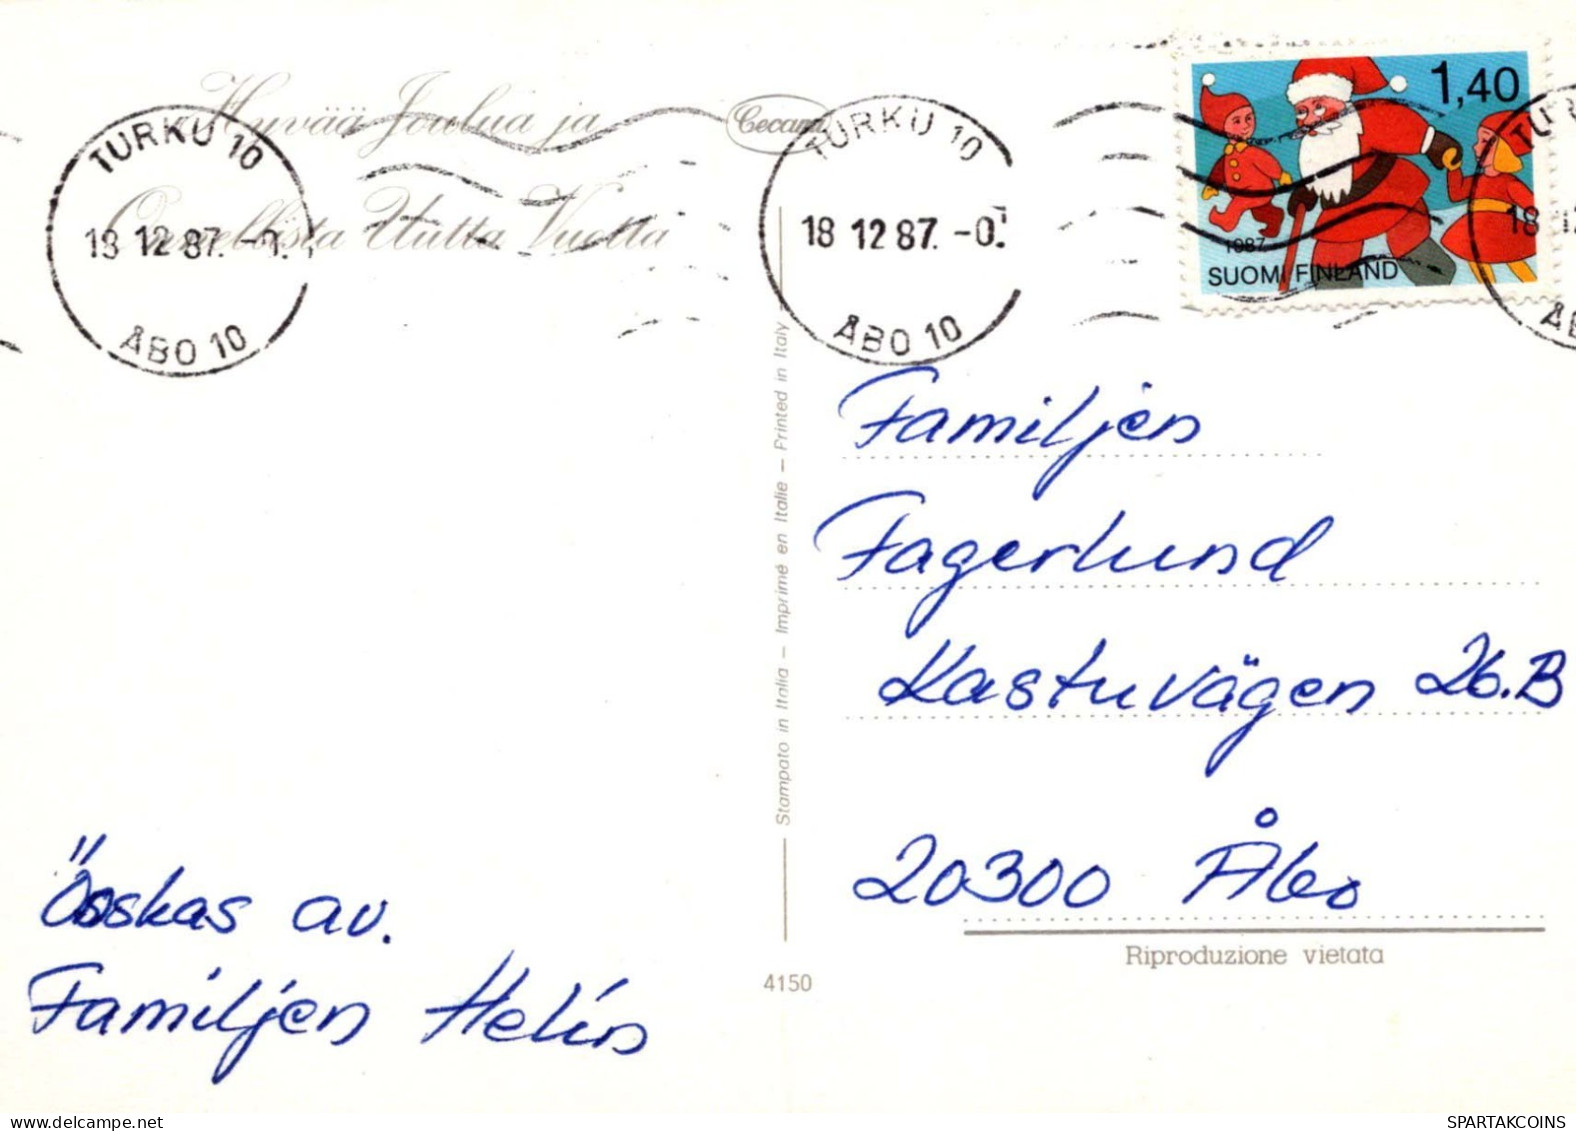 Hyvää Joulua ja
Onnellista Uutta Vuotta
Cecami
TURKU 10
18 12 87.
ÅBO 10
TURKU 10
18 12 87. -0.
ÅBO 10
1,40
1987
SUOMI FINLAND
TU
18 12
ÅB
Stampato in Italia – Imprimé en Italie – Printed in Italy
Familjen
Fagerlund
Kastuvägen 26.B
20300 Åbo
Riproduzione vietata
4150
Önskas av.
Familjen Helin
SPARTAKCOINS